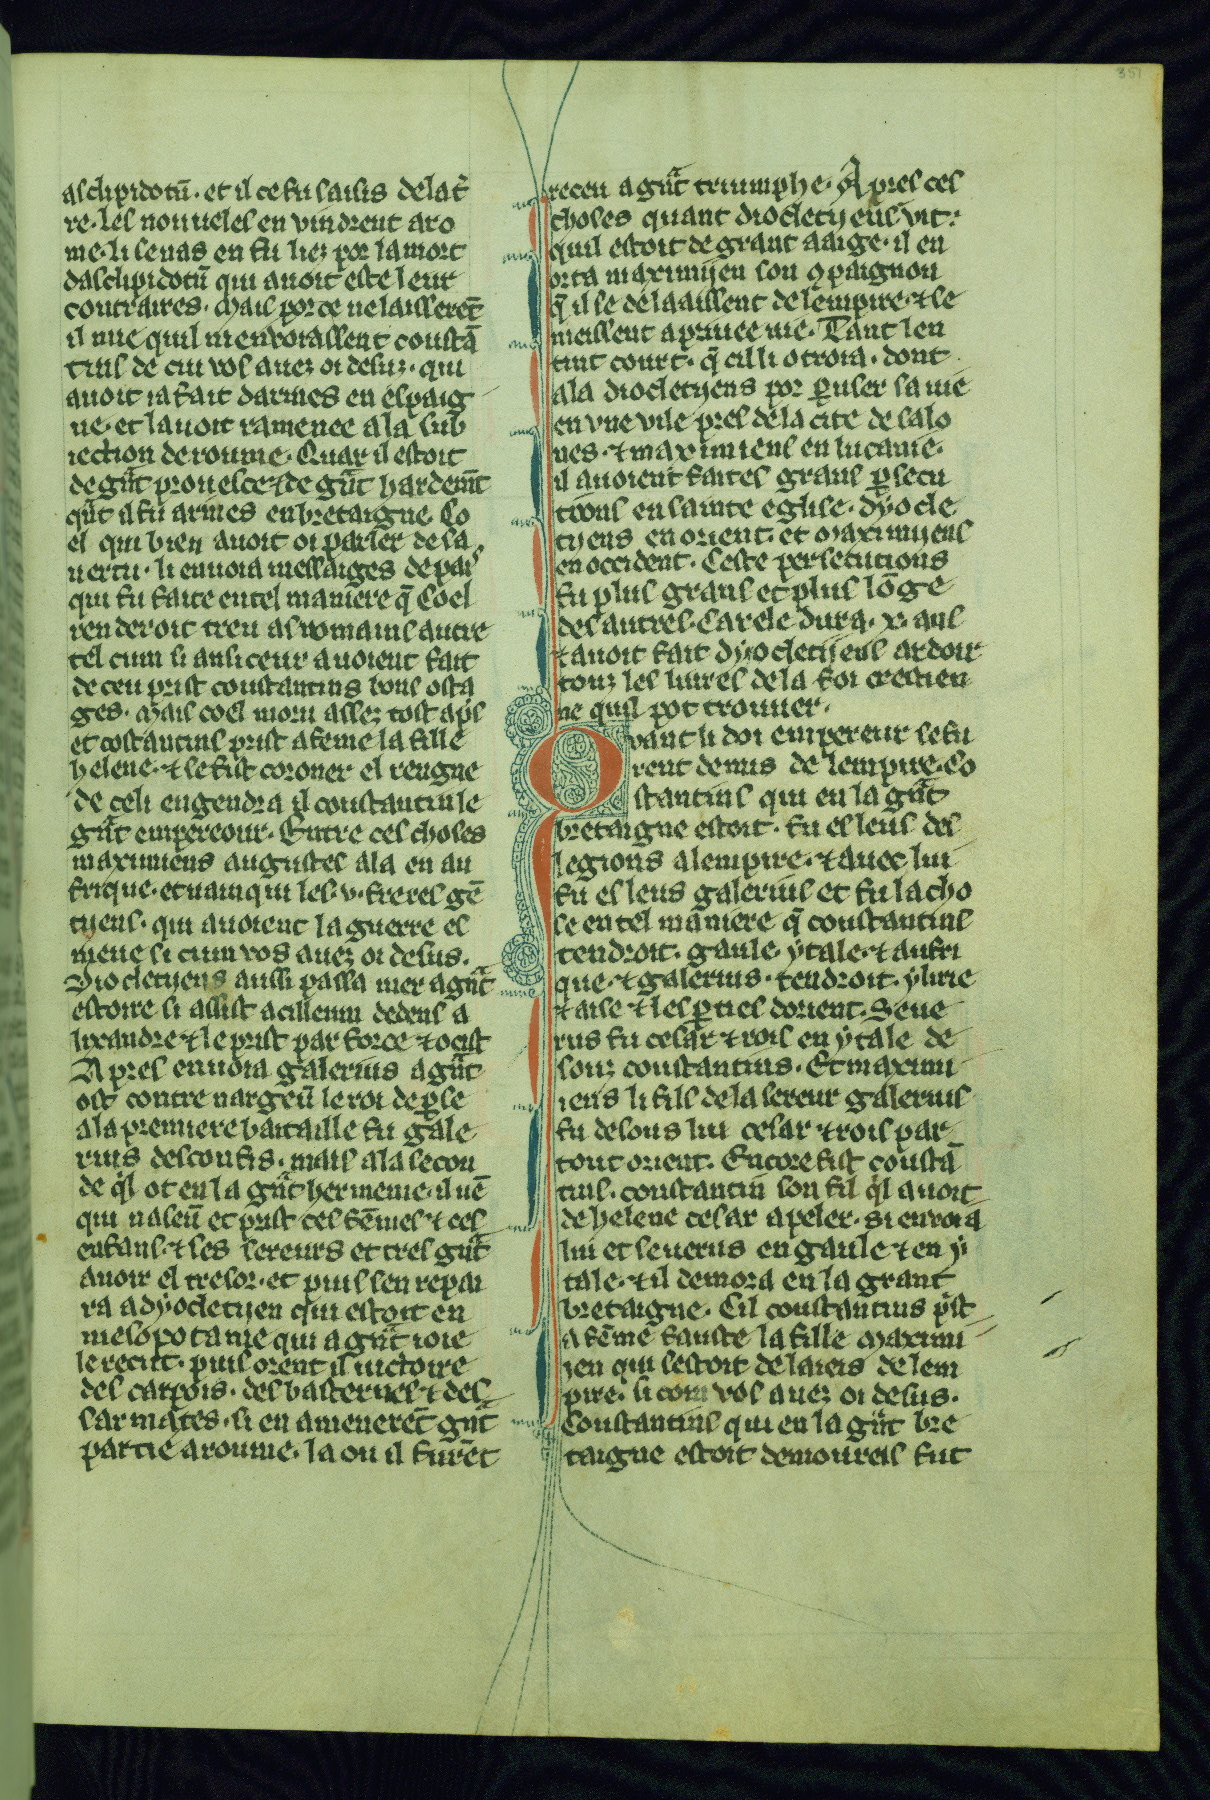 351
asclipidotū· et il ce fu saisis de la t̉
re· les nouueles en vindrent a ro
me· li senas en fu liez por la mort
dasclipidotū qui auoit este leur
contraires· Mais por ce ne laisserēt
il mie quil nienvoiassent constā
tius de cui vos auez oi desuz· qui
auoit ia fait darmes en espaig
ne· et lauoit ramenee a la sub
iection de roume· Quar il estoit
de gr̄t prouesce ⁊ de gr̄t hardemt̄
qr̄t il fu armes en bretaigne· Co
el qui bien auoit oi parler de sa
uertu· li enuoia messaiges de pais
qui fu faite en tel maniere q̄ Coel
renderoit treu as romains autre
tel cum si ansiceur auoient fait
de ceu prist constantins bons osta
ges· Mais coel moru assez tost ap̄s
et costantins prist a feme la fille
helene· ⁊ se fist coroner el rengne
de celi engendra il constantin le
gr̄t empereour· Entre ces choses
maximiens augustes ala en au
frique· et uainqui les· v· freres gē
tyens· qui auoient la guerre es
meue si cum vos auez oi desus·
Dyocletyens aussi passa mer a gr̄t
estoire si assist acillemi dedens a
lixandre ⁊ le prist par force ⁊ ocist
Apres enuoia galerius a gr̄t
ost contre nargeū le roi de ꝑse
a la premiere bataille fu gale
rius desconfis· mais a la secon
de q̄l ot en la gr̄t hermenie· il uē
qui naseū et prist ces fēmes ⁊ ces
enfans· ⁊ ses sereurs et tres gr̄t
auoir el tresor· et puis sen repai
ra a dyocletyen qui estoit en
mesopotamie qui a gr̄t ioie
le recut· puis orent il uictoire
des carpois· des basternes ⁊ des
sarmates· si en amenerēt gr̄t
partie a roume· la ou il furēt
receu a gr̄t triumphe· Apres ces
choses quant diocletyens vit·
quil estoit de grant aaige· il en
orta maximyen son ꝯpaignon
q̄ il se delaaissent de lempire· ⁊ se
meissent a priuee uie· Tant len
tint court· q̄ cil li otroia· dont
ala diocletyens por ꝑuser sa uie
en vne vile pres de la cite de salo
nes· ⁊ maximiens en lucanie·
il auoient faites grans ꝑsecu
tions en sainte eglise· dyocle
tyens en orient· et Maximyens
en occident· Ceste persecutions
fu plus grans et plus lōge
des autres· Car ele dura· x· ans
⁊ auoit fait dyocletyens ardoir
touz les liures de la foi crestien
ne quil pot trouuer·
Qvant li doi empereur se fu
rent demis de lempire· Co
stantins qui en la gr̄t
bretaigne estoit· fu esleus des
legions a lempire· ⁊ auec lui
fu esleus galerius et fu la cho
se en tel maniere q̄ constantins
tendroit· gaule· ytale· ⁊ aufri
que· ⁊ galerius· tendroit· ylirie
⁊ aise ⁊ les ꝑties dorient· Seue
rus fu cesar ⁊ rois en ytale de
souz constantius· Et maximi
iens li fils de la sereur galerius
fu desous lui cesar ⁊ rois par
tout orient· Encore fist constā
tius· constantin son fil q̄l auoit
de helene cesar apeler· si enroia
lui et seuerus en gaule ⁊ en y
tale· ⁊ il demora en la grant
bretaigne· Cil constantius p̄st
a fēme fauste la fille Maximi
ien qui sestoit delaieis de lem
pire· si com vos auez oi desus·
Constantins qui en la gr̄t bre
taigne estoit demoureis fut